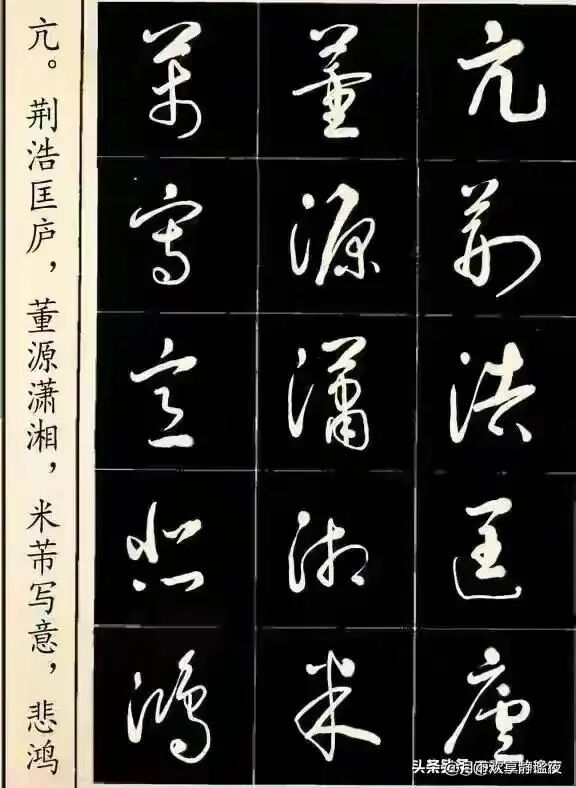 亢荆浩匡廬
董源瀟湘米
芾寫意悲鴻
亢。荆浩匡庐，董源潇湘，米芾写意，悲鸿
头条 @月下欢享静谧夜